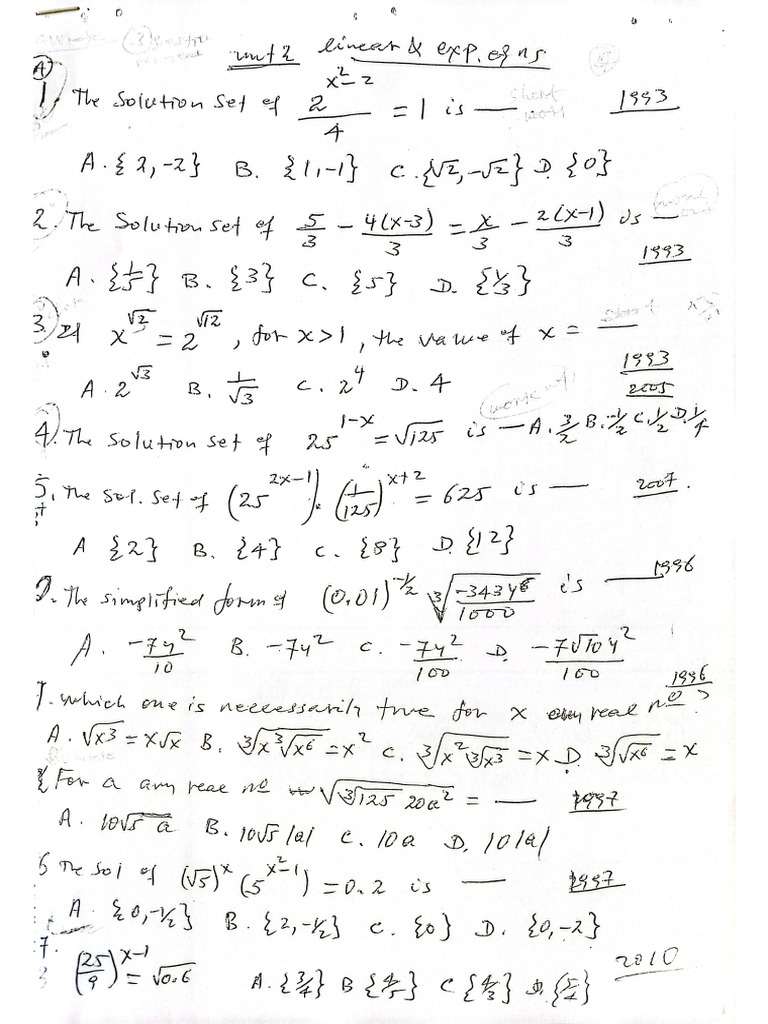 unit 2 linear & exp. eqns
(A)
1. The solution set of 2^(x²-2)/4 = 1 is — 1993
A. {2, -2} B. {1, -1} C. {√2, -√2} D. {0}
2. The Solution set of 5/3 - 4(x-3)/3 = x/3 - 2(x-1)/3 is —
1993
A. {1/5} B. {3} C. {5} D. {1/3}
3. If x^√2 = 2^√12, for x>1, the value of x = —
1993
A. 2^√3 B. 1/√3 C. 2^4 D. 4
2005
4. The solution set of 25^(1-x) = √125 is — A. 3/2 B. -1/2 C. 1/2 D. 1/4
5. The sol. set of (25^(2x-1)) · (1/125)^(x+2) = 625 is — 2007.
A {2} B. {4} C. {8} D. {12}
The simplified form of (0.01)^(-1/2) ∛(-343y⁶/1000) is — 1996
A. -7y²/10 B. -7y² C. -7y²/100 D. -7√10 y²/100
1996
which one is neccessarily true for x any real nº ?
A. √x³ = x√x B. ∛(x∛√x⁶) = x² C. ∛(x²∛x³) = x D. ∛√x⁶ = x
For a any real nº √(∛125 20a²) = — 1997
A. 10√5 a B. 10√5 |a| C. 10a D. 10|a|
The sol of (√5)^x (5^(x²-1)) = 0.2 is — 1997
A. {0, -1/2} B. {2, -1/2} C. {0} D. {0, -2}
7.
(25/9)^(x-1) = √0.6 A. {3/4} B {4/5} C {4/3} D. {5/4} 2010